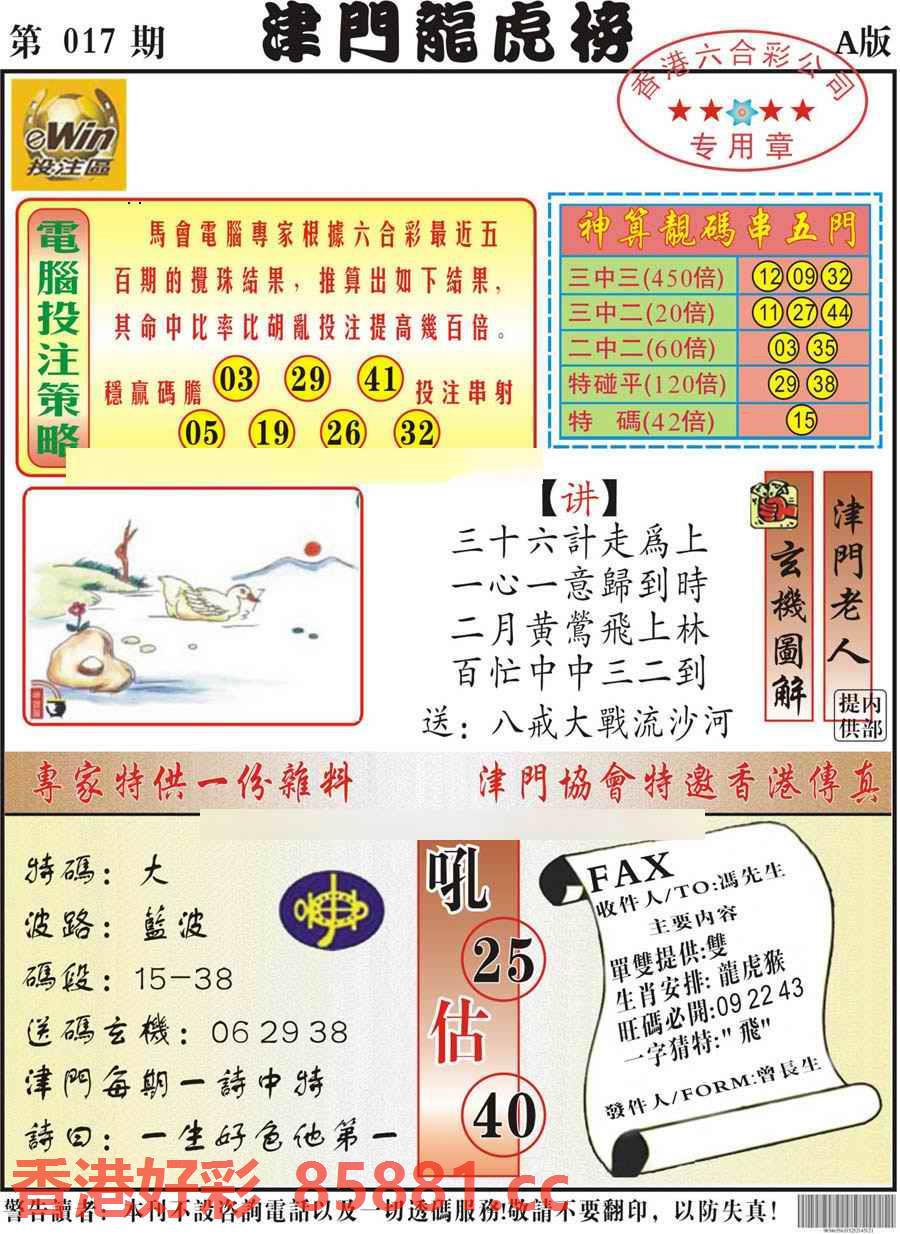 第 017 期
津門龍虎榜
A版
香港六合彩公司
专用章
eWin
投注區
電腦投注策略
馬會電腦專家根據六合彩最近五
百期的攪珠結果，推算出如下結果，
其命中比率比胡亂投注提高幾百倍。
穩贏碼膽 03 29 41 投注串射
05 19 26 32
神算靚碼串五門
三中三(450倍) 12 09 32
三中二(20倍) 11 27 44
二中二(60倍) 03 35
特碰平(120倍) 29 38
特 碼(42倍) 15
【讲】
三十六計走爲上
一心一意歸到時
二月黄鶯飛上林
百忙中中三二到
送：八戒大戰流沙河
玄機圖解
津門老人
内部提供
專家特供一份雜料
津門協會特邀香港傳真
特碼：大
波路：藍波
碼段：15-38
送碼玄機：06 29 38
津門每期一詩中特
詩曰：一生好色他第一
吼
25
估
40
FAX
收件人/TO:馮先生
主要内容
單雙提供:雙
生肖安排:龍虎猴
旺碼必開:09 22 43
一字猜特:"飛"
發件人/FORM:曾長生
香港好彩 85881.cc
警告讀者：本刊不設咨詢電話以及一切透碼服務!敬請不要翻印，以防失真!